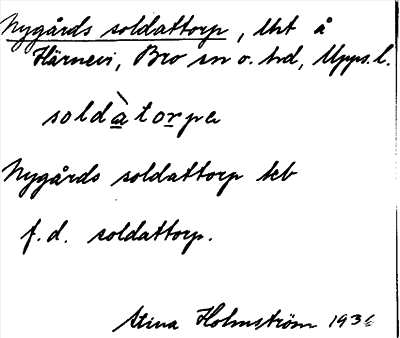 Nygårds soldattorp, lht å
Härnevi, Bro sn o. hd, Upps.l.
soldàtorpa
Nygårds soldattorp leb
f.d. soldattorp.
Stina Holmström